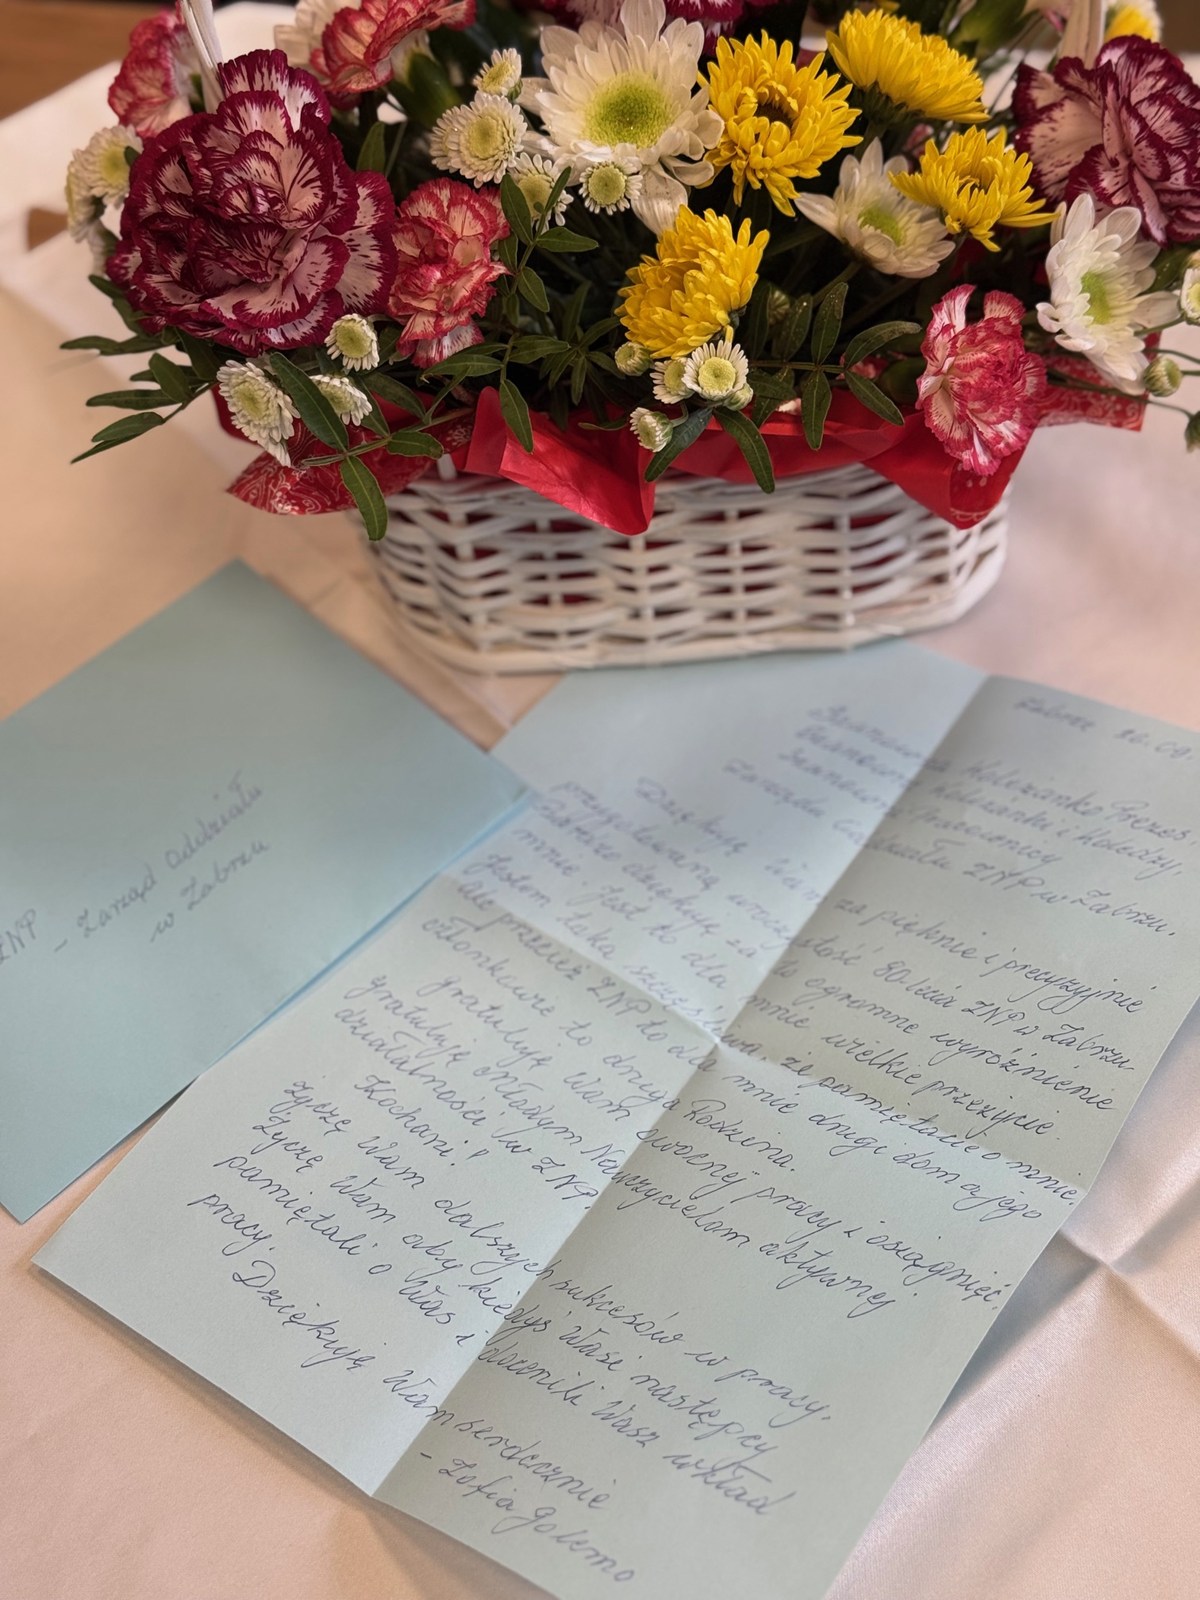 ZNP
- Zarząd Oddziału
w Zabrzu
Zabrze
Szanowna Koleżanko Prezes
Szanowne Koleżanki i Koledzy,
Szanowni Pracownicy
Zarządu Oddziału ZNP w Zabrzu.
Dziękuję Wam za pięknie i precyzyjnie
przygotowaną uroczystość 80lecia ZNP w Zabrzu.
Bardzo dziękuję za to ogromne wyróżnienie
mnie. Jest to dla mnie wielkie przeżycie.
Jestem taka szczęśliwa, że pamiętacie o mnie,
ale przecież ZNP to dla mnie drugi dom a jego
członkowie to druga Rodzina.
gratuluję Wam owocnej pracy i osiągnięć,
gratuluję młodym Nauczycielom aktywnej
działalności w ZNP.
Kochani!
Życzę Wam dalszych sukcesów w pracy.
Życzę Wam aby kiedyś Wasi następcy
pamiętali o Was i docenili Wasz wkład
pracy.
Dziękuję Wam serdecznie
- Zofia Golemo